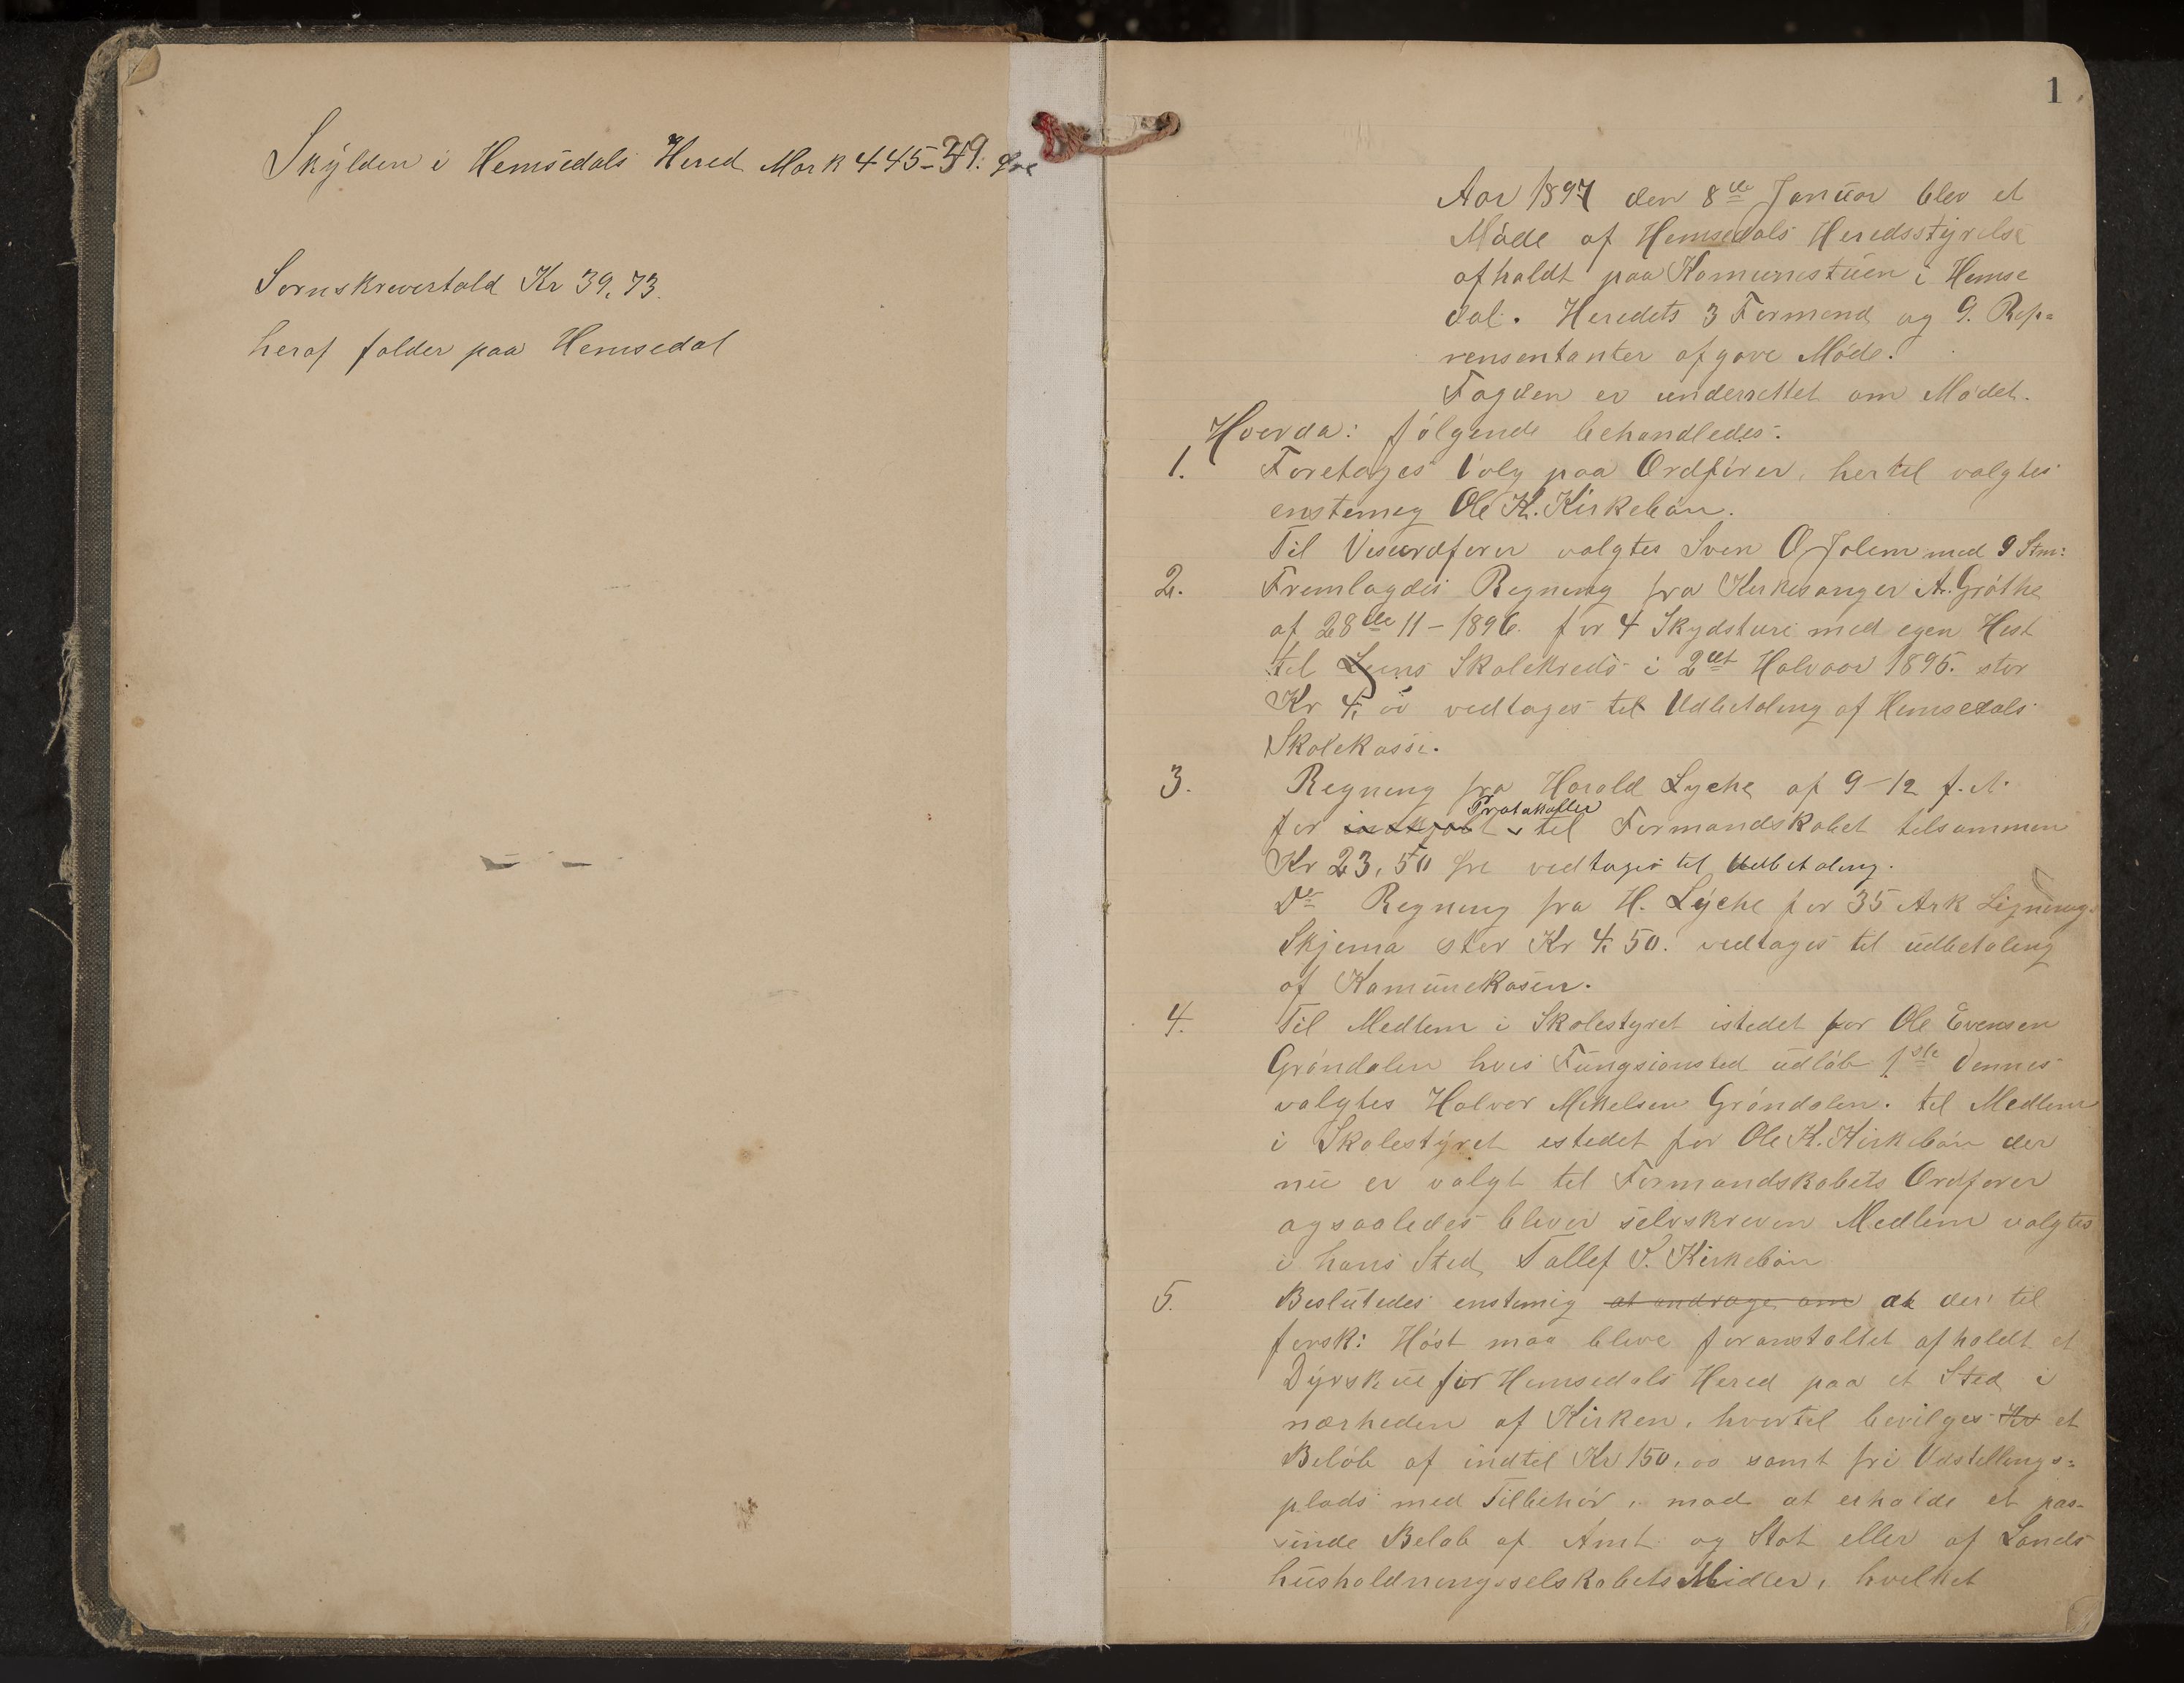 Skylden i Hemsedals Hered Mark 445-39. Øre
Sornskrevertold Kr 39,73.
heraf falder paa Hemsedal
1
Aar 1897 den 8de Januar blev et
Møde af Hemsedals Heredsstyrelse
afholdt paa Komunestuen i Hemse
dal. Heredets 3 Formend og 9. Rep=
rensentanter afgave Møde.
Fogden er underrettet om Mødet.
Hvorda: følgende behandledes:
1. Foretages Valg paa Ordfører, hertil valgtes
enstemig Ole K. Kirkebøn.
Til Viseordfører valgtes Sven O Jolem med 9 Stm:
2. Fremlagdes Regning fra Kirkesanger A. Grøthe
af 28de 11-1896. for 4 Skydsture med egen Hest
til Skolekreds i 2det Halvaar 1895. stor
Kr 4, oo vedtages til Udbetaling af Hemsedals
Skolekasse.
3. Regning fra Harald Lyche af 9-12 f. A.
for indkjøbt Protokoller til Formandskabet tilsammen
Kr 23,50 øre vedtages til Udbetaling.
Do Regning fra H. Lyche for 35 Ark Ligning-
Skjema stor Kr 4,50. vedtages til udbetaling
af Kamunekasen.
4. Til Medlem i Skolestyret istedet for Ole Evensen
Grøndalen hvis Fungsionsted udløb 1ste dennes
valgtes Halvor Mikelsen Grøndalen. til Medlem
i Skolestyret istedet for Ole K. Kirkebøn der
nu er valgt til Formandskabets Ordfører
ogsaaledes bliver selvskreven Medlem valgtes
i hans Sted Tollef Kirkebøn
5. Beslutedes enstemig at andrage om at der til
førsk: Høst maa blive foranstaltet afholdt et
Dyrskue for Hemsedals Hered paa et Sted i
nærheden af Kirken, hvortil bevilges Kr et
Beløb af indtil Kr 150,oo samt fri Udstillings=
plads med Tilbehør, mod at erholde et pas-
sende Beløb af Amt og Stat eller af Lands
husholdningsselskabets Midler, hvilket